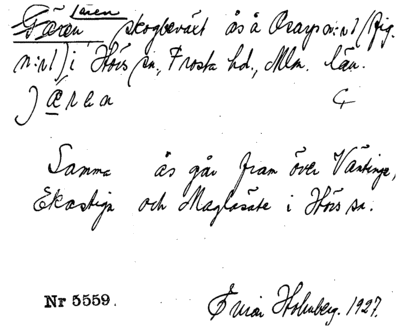 Jären
Gären skogbeväxt ås å Orups nr 1 (fig.
nr 1) i Hörs sn, Frosta hd., Mlm. län.
jären
Samma ås går fram över Väntinge,
Ekastiga och Maglasäte i Hörs sn.
Nr 5559.
Einar Holmberg. 1927.